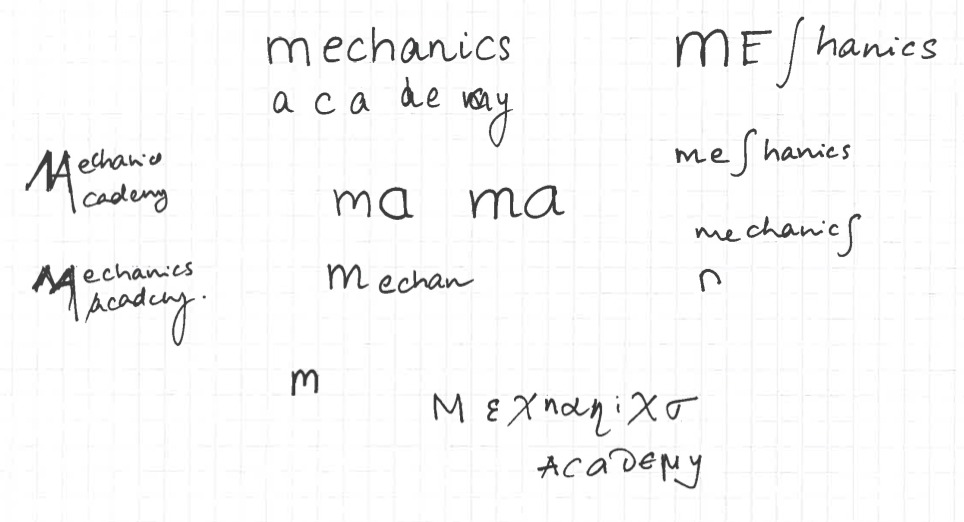 mechanics
academy
mE∫hanics
Mechanics
Academy
me∫hanics
ma ma
mechanic∫
Mechanics
Academy.
mechan
n
m
ΜεχηαηiΧσ
ACADEMY